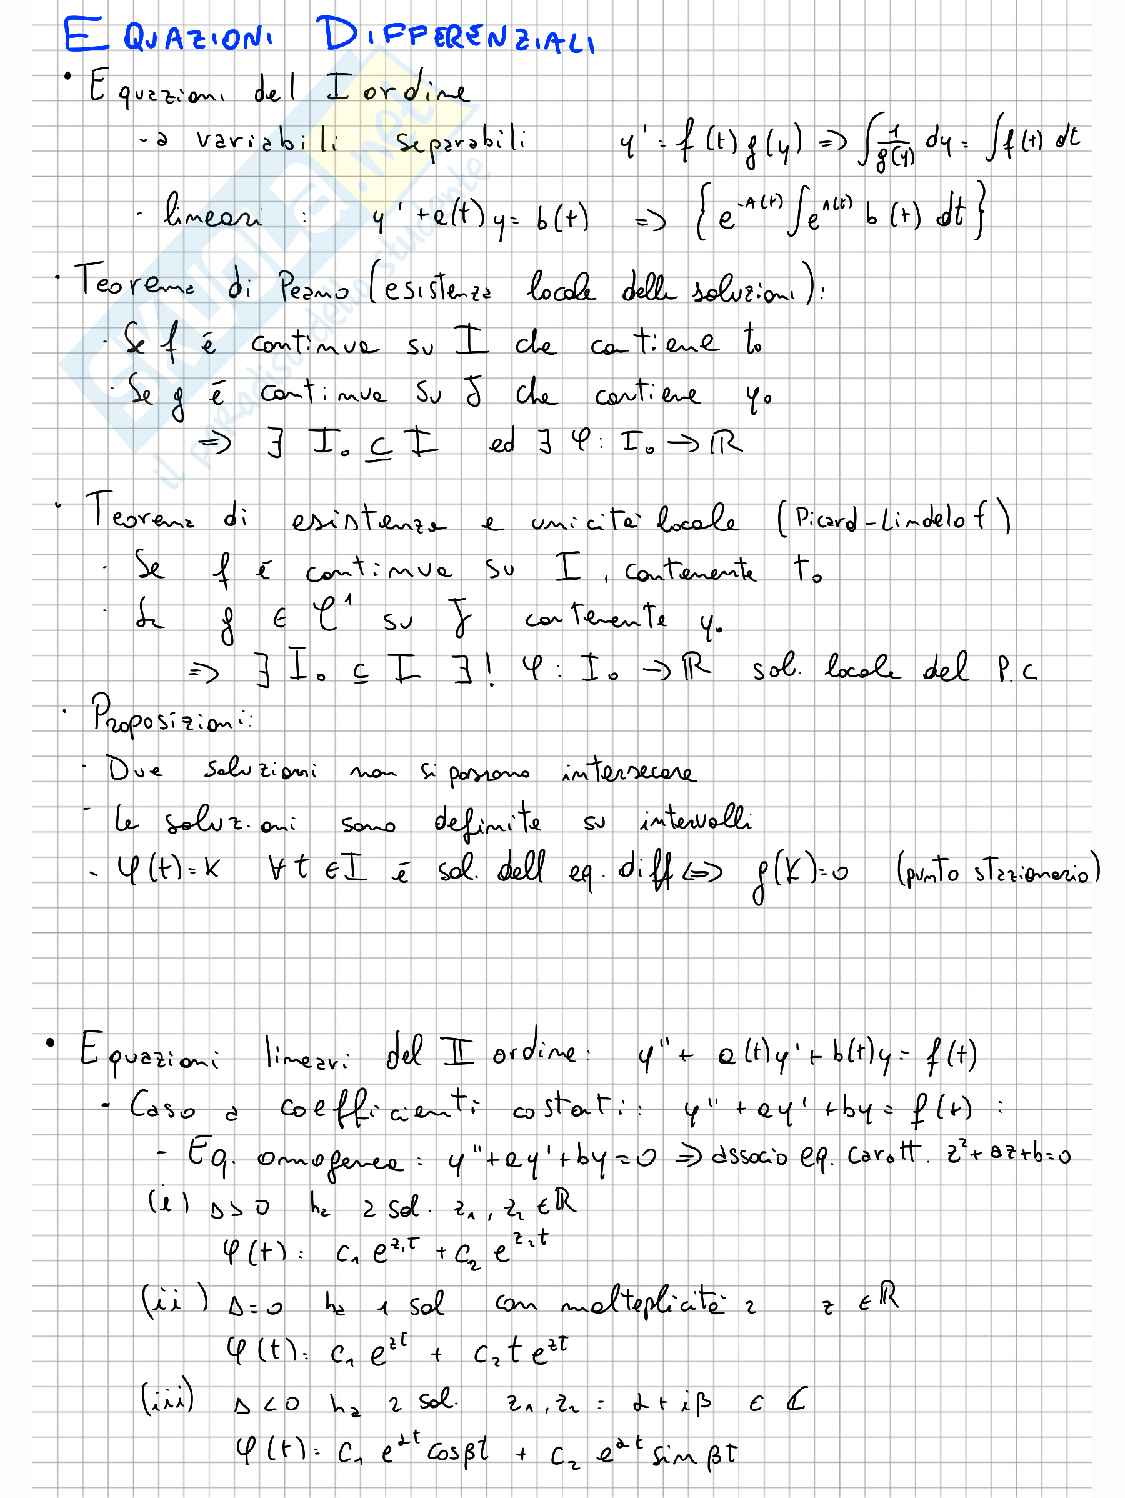 EQUAZIONI DIFFERENZIALI
• Equazioni del I ordine
- a variabili separabili y' = f(t)g(y) => ∫ 1/g(y) dy = ∫ f(t) dt
- lineari : y' + a(t)y = b(t) => { e^-A(t) ∫ e^A(t) b(t) dt }
· Teorema di Peano (esistenza locale delle soluzioni):
· Se f è continua su I che contiene t₀
· Se g è continua su J che contiene y₀
=> ∃ I₀ ⊆ I ed ∃ φ : I₀ → ℝ
· Teorema di esistenza e unicità locale (Picard-Lindelof)
· Se f è continua su I, contenente t₀
· Se g ∈ C¹ su J contenente y₀
=> ∃ I₀ ⊆ I ∃! φ : I₀ → ℝ sol. locale del P.C
· Proposizioni:
- Due soluzioni non si possono intersecare
- Le soluzioni sono definite su intervalli
- φ(t)=K ∀t ∈ I è sol. dell eq. diff <=> g(K)=0 (punto stazionario)
• Equazioni lineari del II ordine: y'' + a(t)y' + b(t)y = f(t)
- Caso a coefficienti costati: y'' + ay' + by = f(t) :
- Eq. omogenea: y''+ay'+by=0 => associo eq. caratt. z²+az+b=0
(i) Δ>0 ha 2 sol. z₁, z₂ ∈ ℝ
φ(t): c₁ e^z₁t + c₂ e^z₂t
(ii) Δ=0 ha 1 sol con molteplicità 2 z ∈ ℝ
φ(t): c₁ e^zt + c₂ t e^zt
(iii) Δ<0 ha 2 sol. z₁, z₂ = α + iβ ∈ ℂ
φ(t): c₁ e^αt cosβt + c₂ e^αt sin βt
SKUOLA.net
il paradiso dello studente